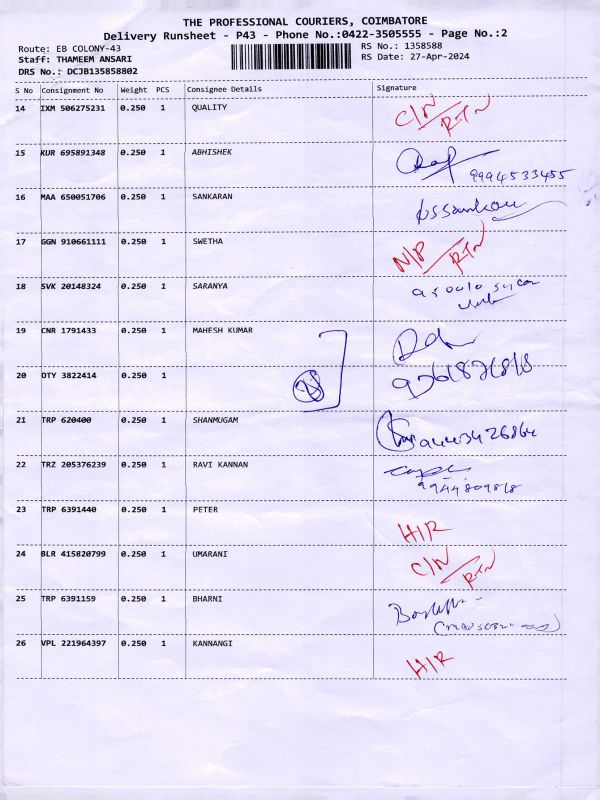 THE PROFESSIONAL COURIERS, COIMBATORE
Delivery Runsheet - P43 - Phone No.:0422-3505555 - Page No.:2
Route: EB COLONY-43 RS No.: 1358588
Staff: THAMEEM ANSARI RS Date: 27-Apr-2024
DRS No.: DCJB135858802
S No Consignment No Weight PCS Consignee Details Signature
14 IXM 506275231 0.250 1 QUALITY C/N RTN
15 KUR 695891348 0.250 1 ABHISHEK 9994533455
16 MAA 650051706 0.250 1 SANKARAN
17 GGN 910661111 0.250 1 SWETHA N/P RTN
18 SVK 20148324 0.250 1 SARANYA
19 CNR 1791433 0.250 1 MAHESH KUMAR
20 DTY 3822414 0.250 1
21 TRP 620400 0.250 1 SHANMUGAM
22 TRZ 205376239 0.250 1 RAVI KANNAN 9944809818
23 TRP 6391440 0.250 1 PETER H/R
24 BLR 415820799 0.250 1 UMARANI C/N RTN
25 TRP 6391159 0.250 1 BHARNI
26 VPL 221964397 0.250 1 KANNANGI H/R